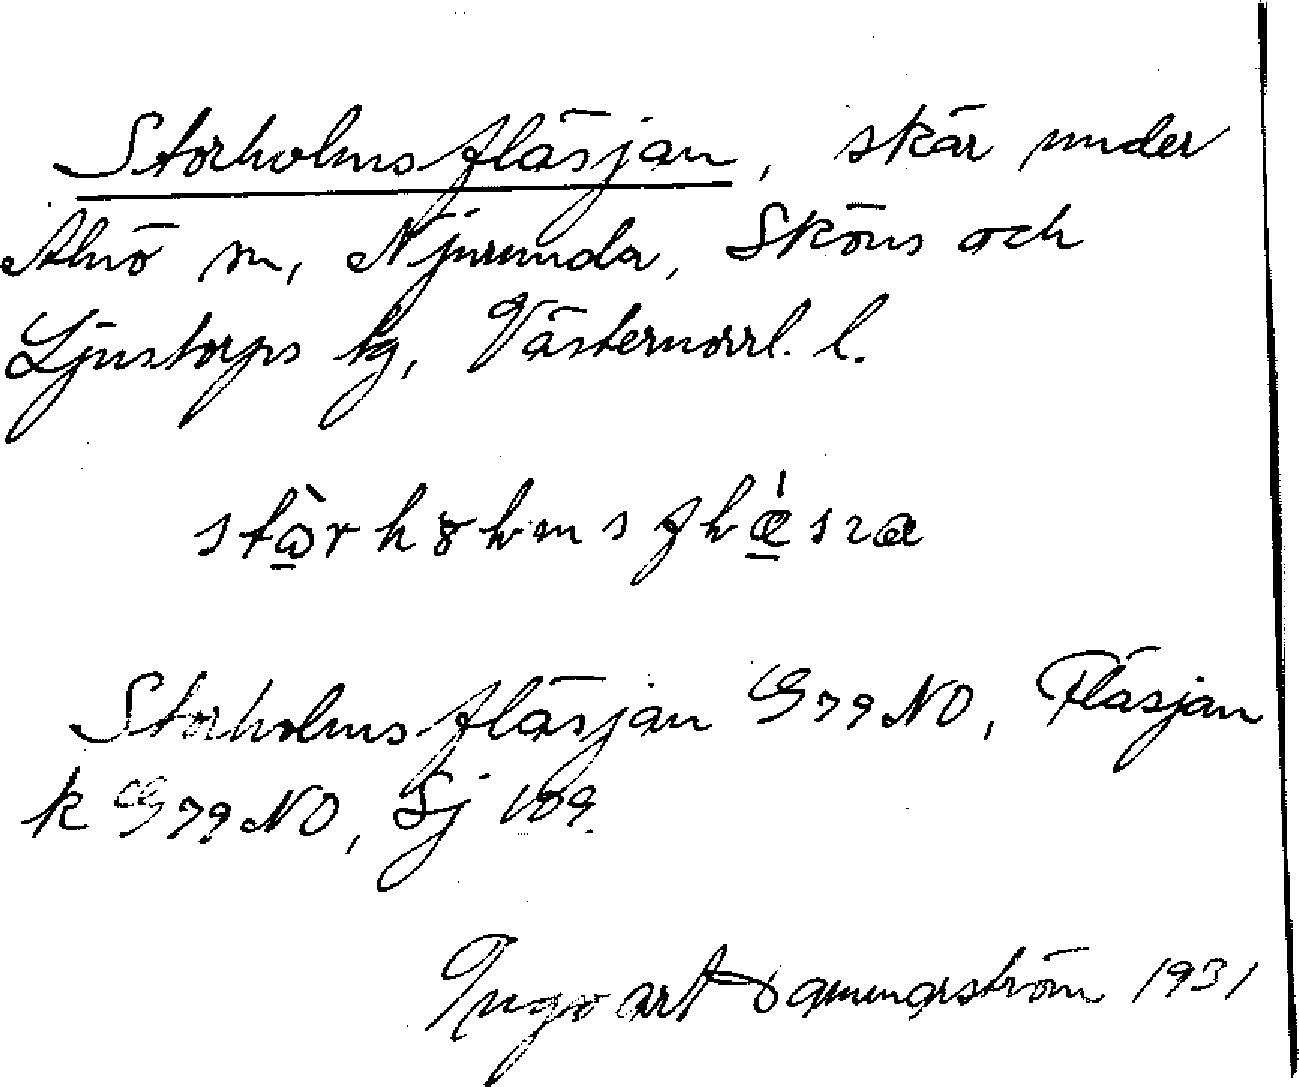 Storholmsfläsjan, skär under
Alnö sn, Njurunda, Sköns och
Ljustorps tg, Västernorrl. l.
Storholmsfläsjan G 79 NO, Fläsjan
k G 79 NO, Sj 109.
Ingvart Dammerström 1931